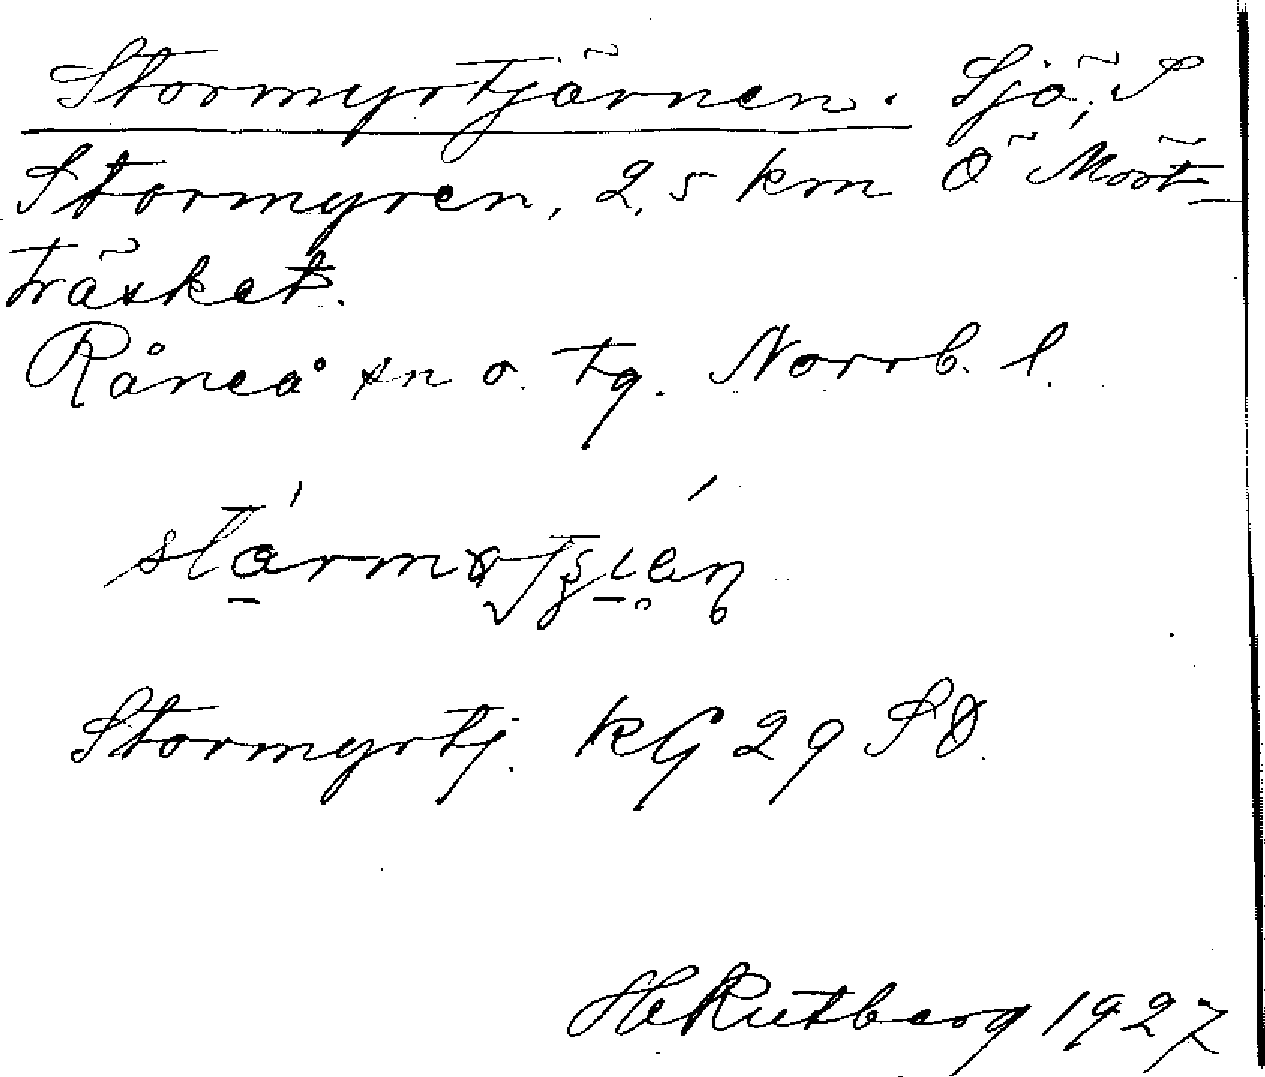 Stormyrtjärnen. Sjö, S
Stormyren, 2,5 km Ö Mört-
träsket.
Råneå sn o. tg. Norrb. l.
Stormyrtj. KG 29 SO.
H Rutberg 1927